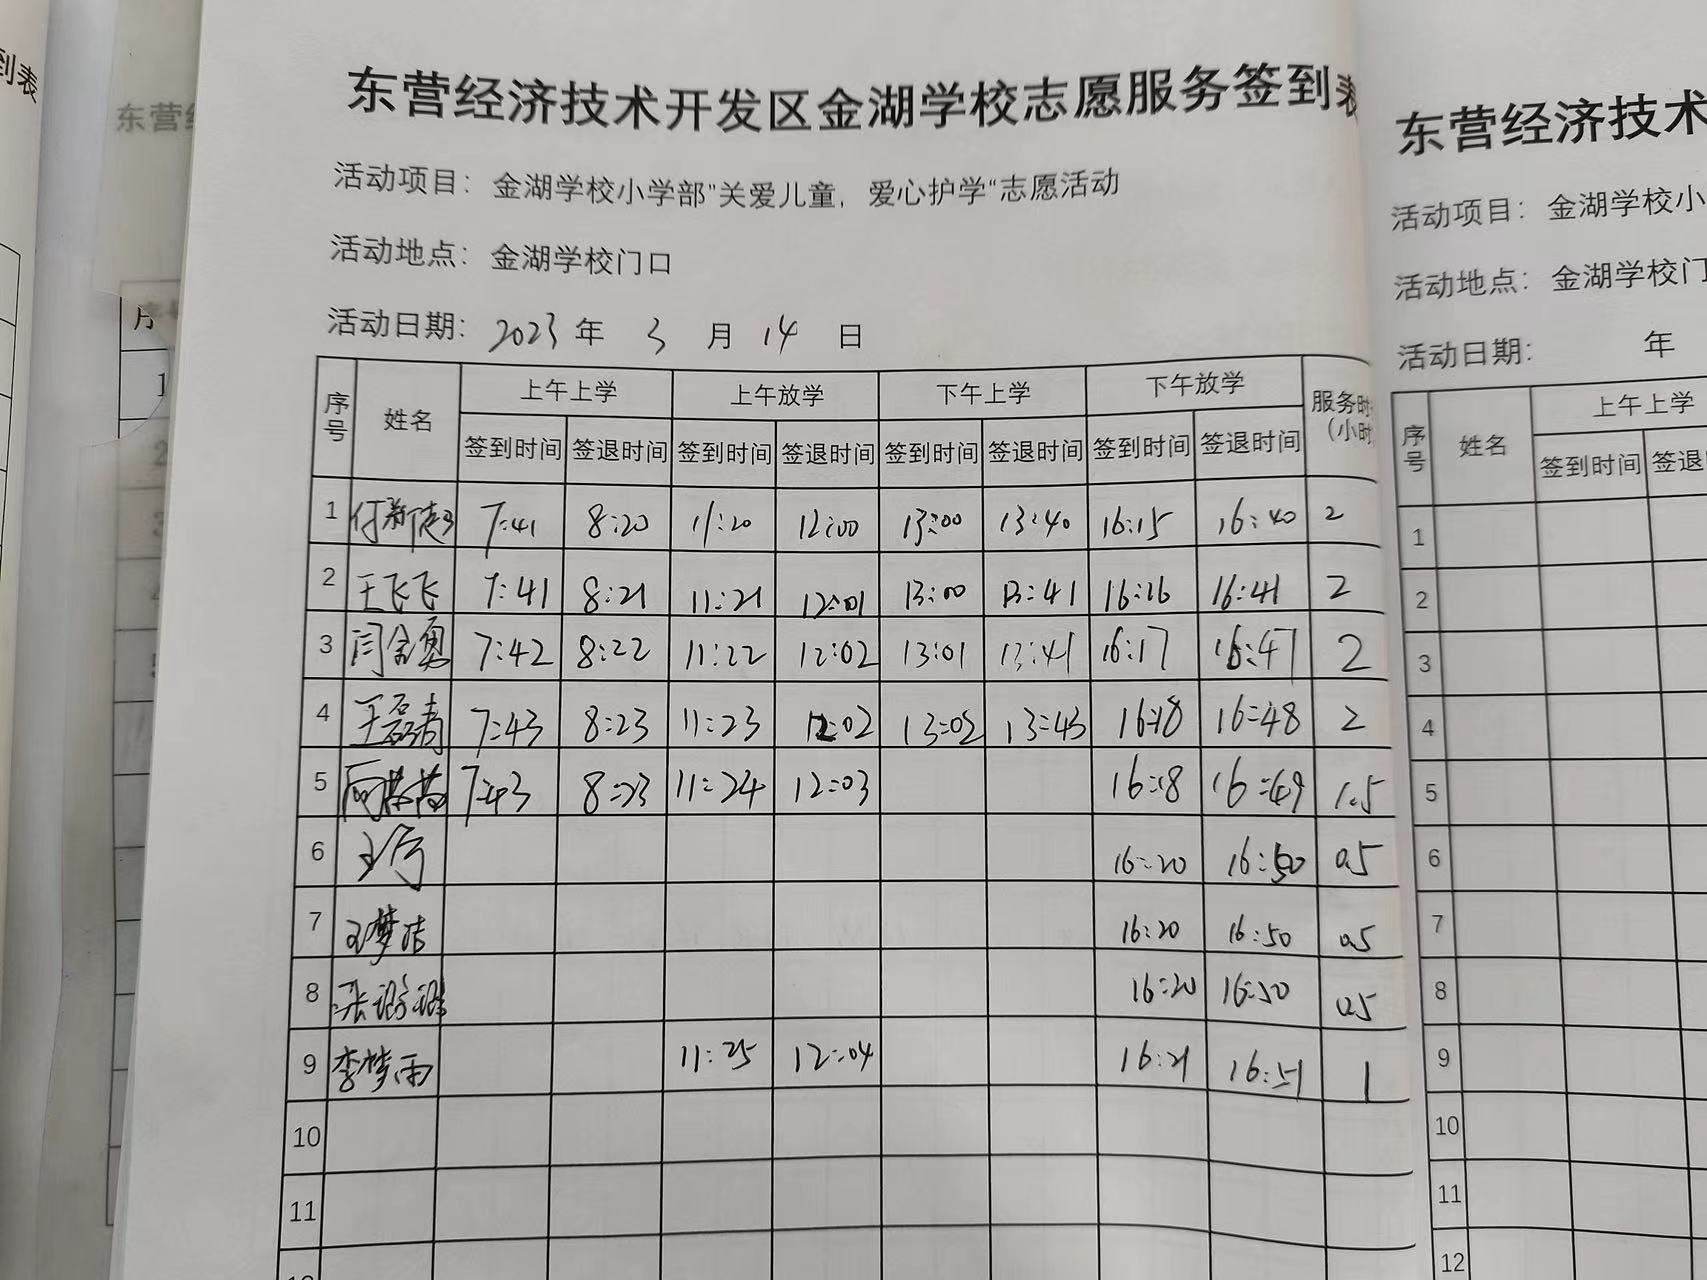 到表
东营经济技术开发区金湖学校志愿服务签到表
活动项目：金湖学校小学部"关爱儿童，爱心护学"志愿活动
活动地点：金湖学校门口
活动日期：2023 年 3 月 14 日
序号 姓名 上午上学 上午放学 下午上学 下午放学 服务时 (小时
签到时间 签退时间 签到时间 签退时间 签到时间 签退时间 签到时间 签退时间
1 7:41 8:20 11:20 12:00 13:00 13:40 16:15 16:40 2
2 王飞飞 7:41 8:21 11:21 12:01 13:00 13:41 16:16 16:41 2
3 闫金勇 7:42 8:22 11:22 12:02 13:01 13:41 16:17 16:47 2
4 王磊涛 7:43 8:23 11:23 12:02 13:02 13:43 16:18 16:48 2
5 7:43 8:23 11:24 12:03 16:18 16:49 1.5
6 16:20 16:50 0.5
7 王梦洁 16:20 16:50 0.5
8 张璐璐 16:20 16:50 0.5
9 李梦雨 11:25 12:04 16:21 16:51 1
10
11
东营经济技术
活动项目：金湖学校小
活动地点：金湖学校门
活动日期： 年
序号 姓名 上午上学
签到时间 签退
1
2
3
4
5
6
7
8
9
10
11
12
东营
序
1
2